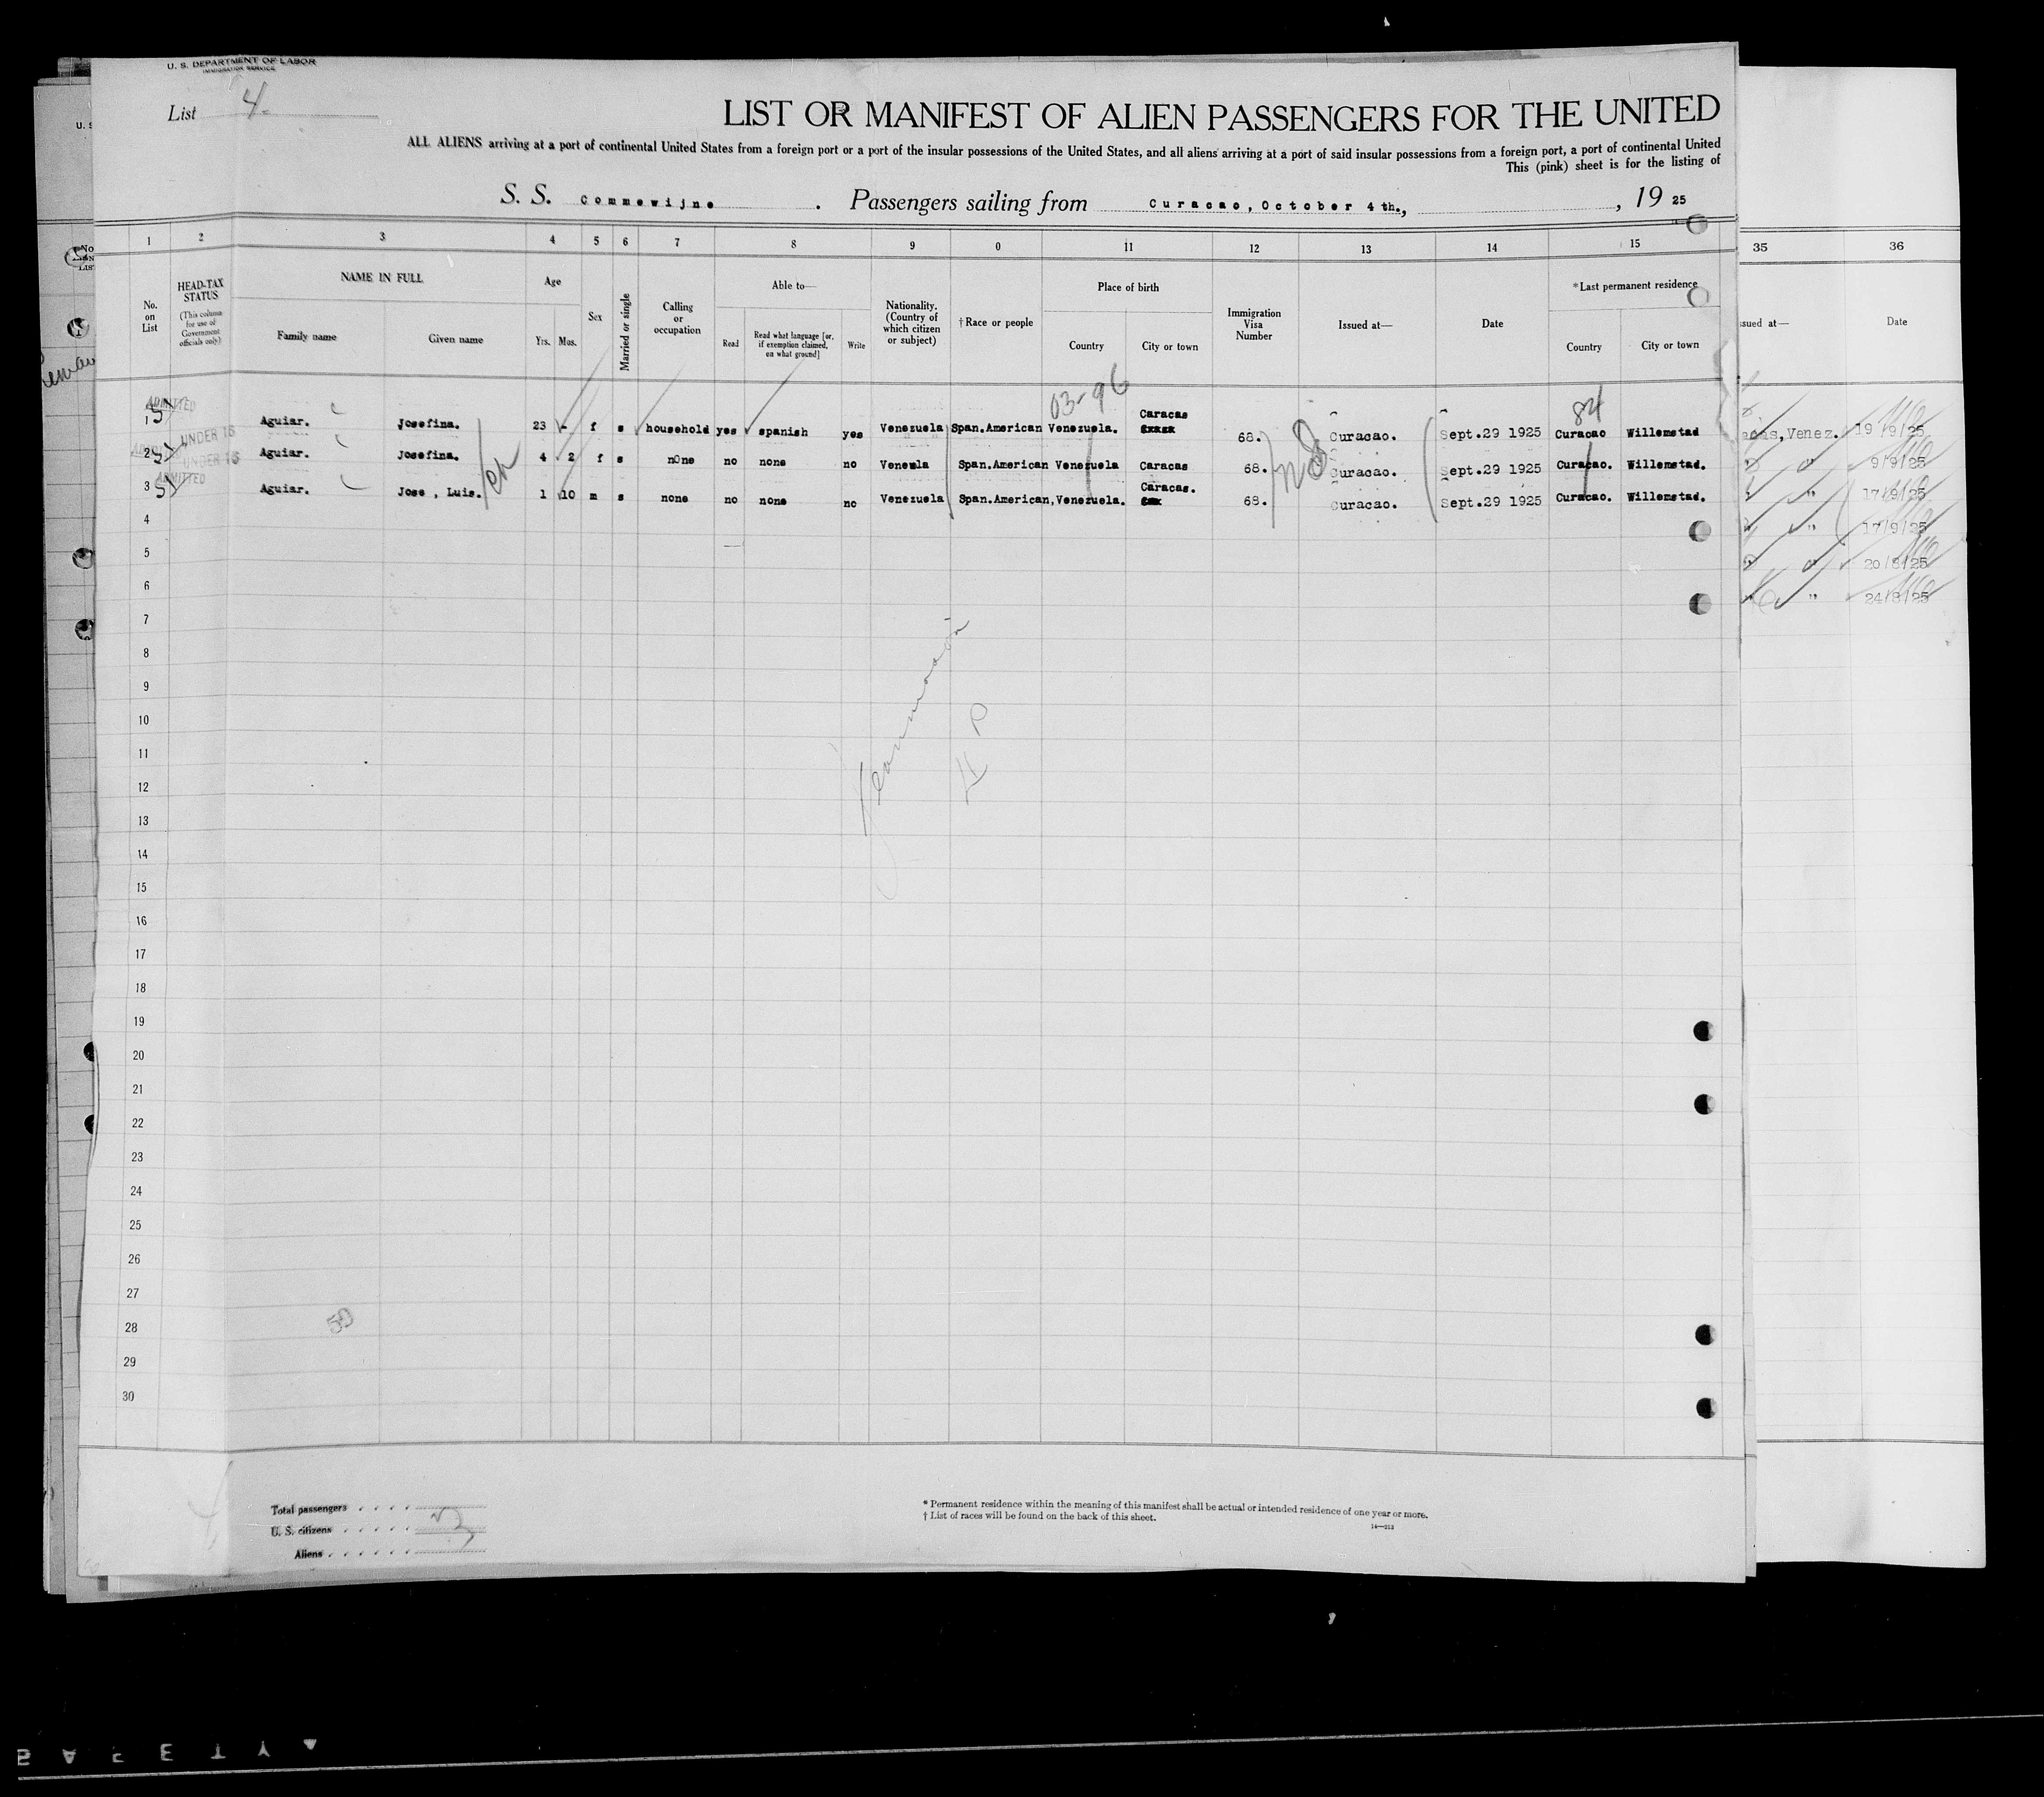 U. S. DEPARTMENT OF LABOR
IMMIGRATION SERVICE
List 4.
LIST OR MANIFEST OF ALIEN PASSENGERS FOR THE UNITED
ALL ALIENS arriving at a port of continental United States from a foreign port or a port of the insular possessions of the United States, and all aliens arriving at a port of said insular possessions from a foreign port, a port of continental United
This (pink) sheet is for the listing of
S. S. Commewijne . Passengers sailing from Curacao, October 4 th., , 19 25
1 2 3 4 5 6 7 8 9 0 11 12 13 14 15 35 36
No. on List
HEAD-TAX STATUS
(This column for use of Government officials only)
NAME IN FULL
Family name Given name
Age
Yrs. Mos.
Sex
Married or single
Calling or occupation
Able to—
Read
Read what language [or, if exemption claimed, on what ground]
Write
Nationality. (Country of which citizen or subject)
† Race or people
Place of birth
Country City or town
Immigration Visa Number
Issued at—
Date
*Last permanent residence
Country City or town
ssued at— Date
03-96 84
ADMITTED
1 Aguiar. Josefina. 23 - f s household yes spanish yes Venezuela Span.American Venezuela. Caracas 68. Curacao. Sept.29 1925 Curacao Willemstad
UNDER 16
2 Aguiar. Josefina. 4 2 f s nOne no none no Venemla Span.American Venezuela Caracas 68. Curacao. Sept.29 1925 Curacao. Willemstad.
UNDER 16
ADMITTED
3 Aguiar. Jose , Luis. 1 10 m s none no none no Venezuela Span.American, Venezuela. Caracas. 68. Curacao. Sept.29 1925 Curacao. Willemstad.
acas, Venez. 19/9/25
" 9/9/25
" 17/9/25
" 17/9/25
" 20/8/25
" 24/8/25
4
5
6
7
8
9
10
11
12
13
14
15
16
17
18
19
20
21
22
23
24
25
26
27
28
29
30
50
Total passengers
U. S. citizens 3
Aliens
* Permanent residence within the meaning of this manifest shall be actual or intended residence of one year or more.
† List of races will be found on the back of this sheet.
14—313
SAFETY